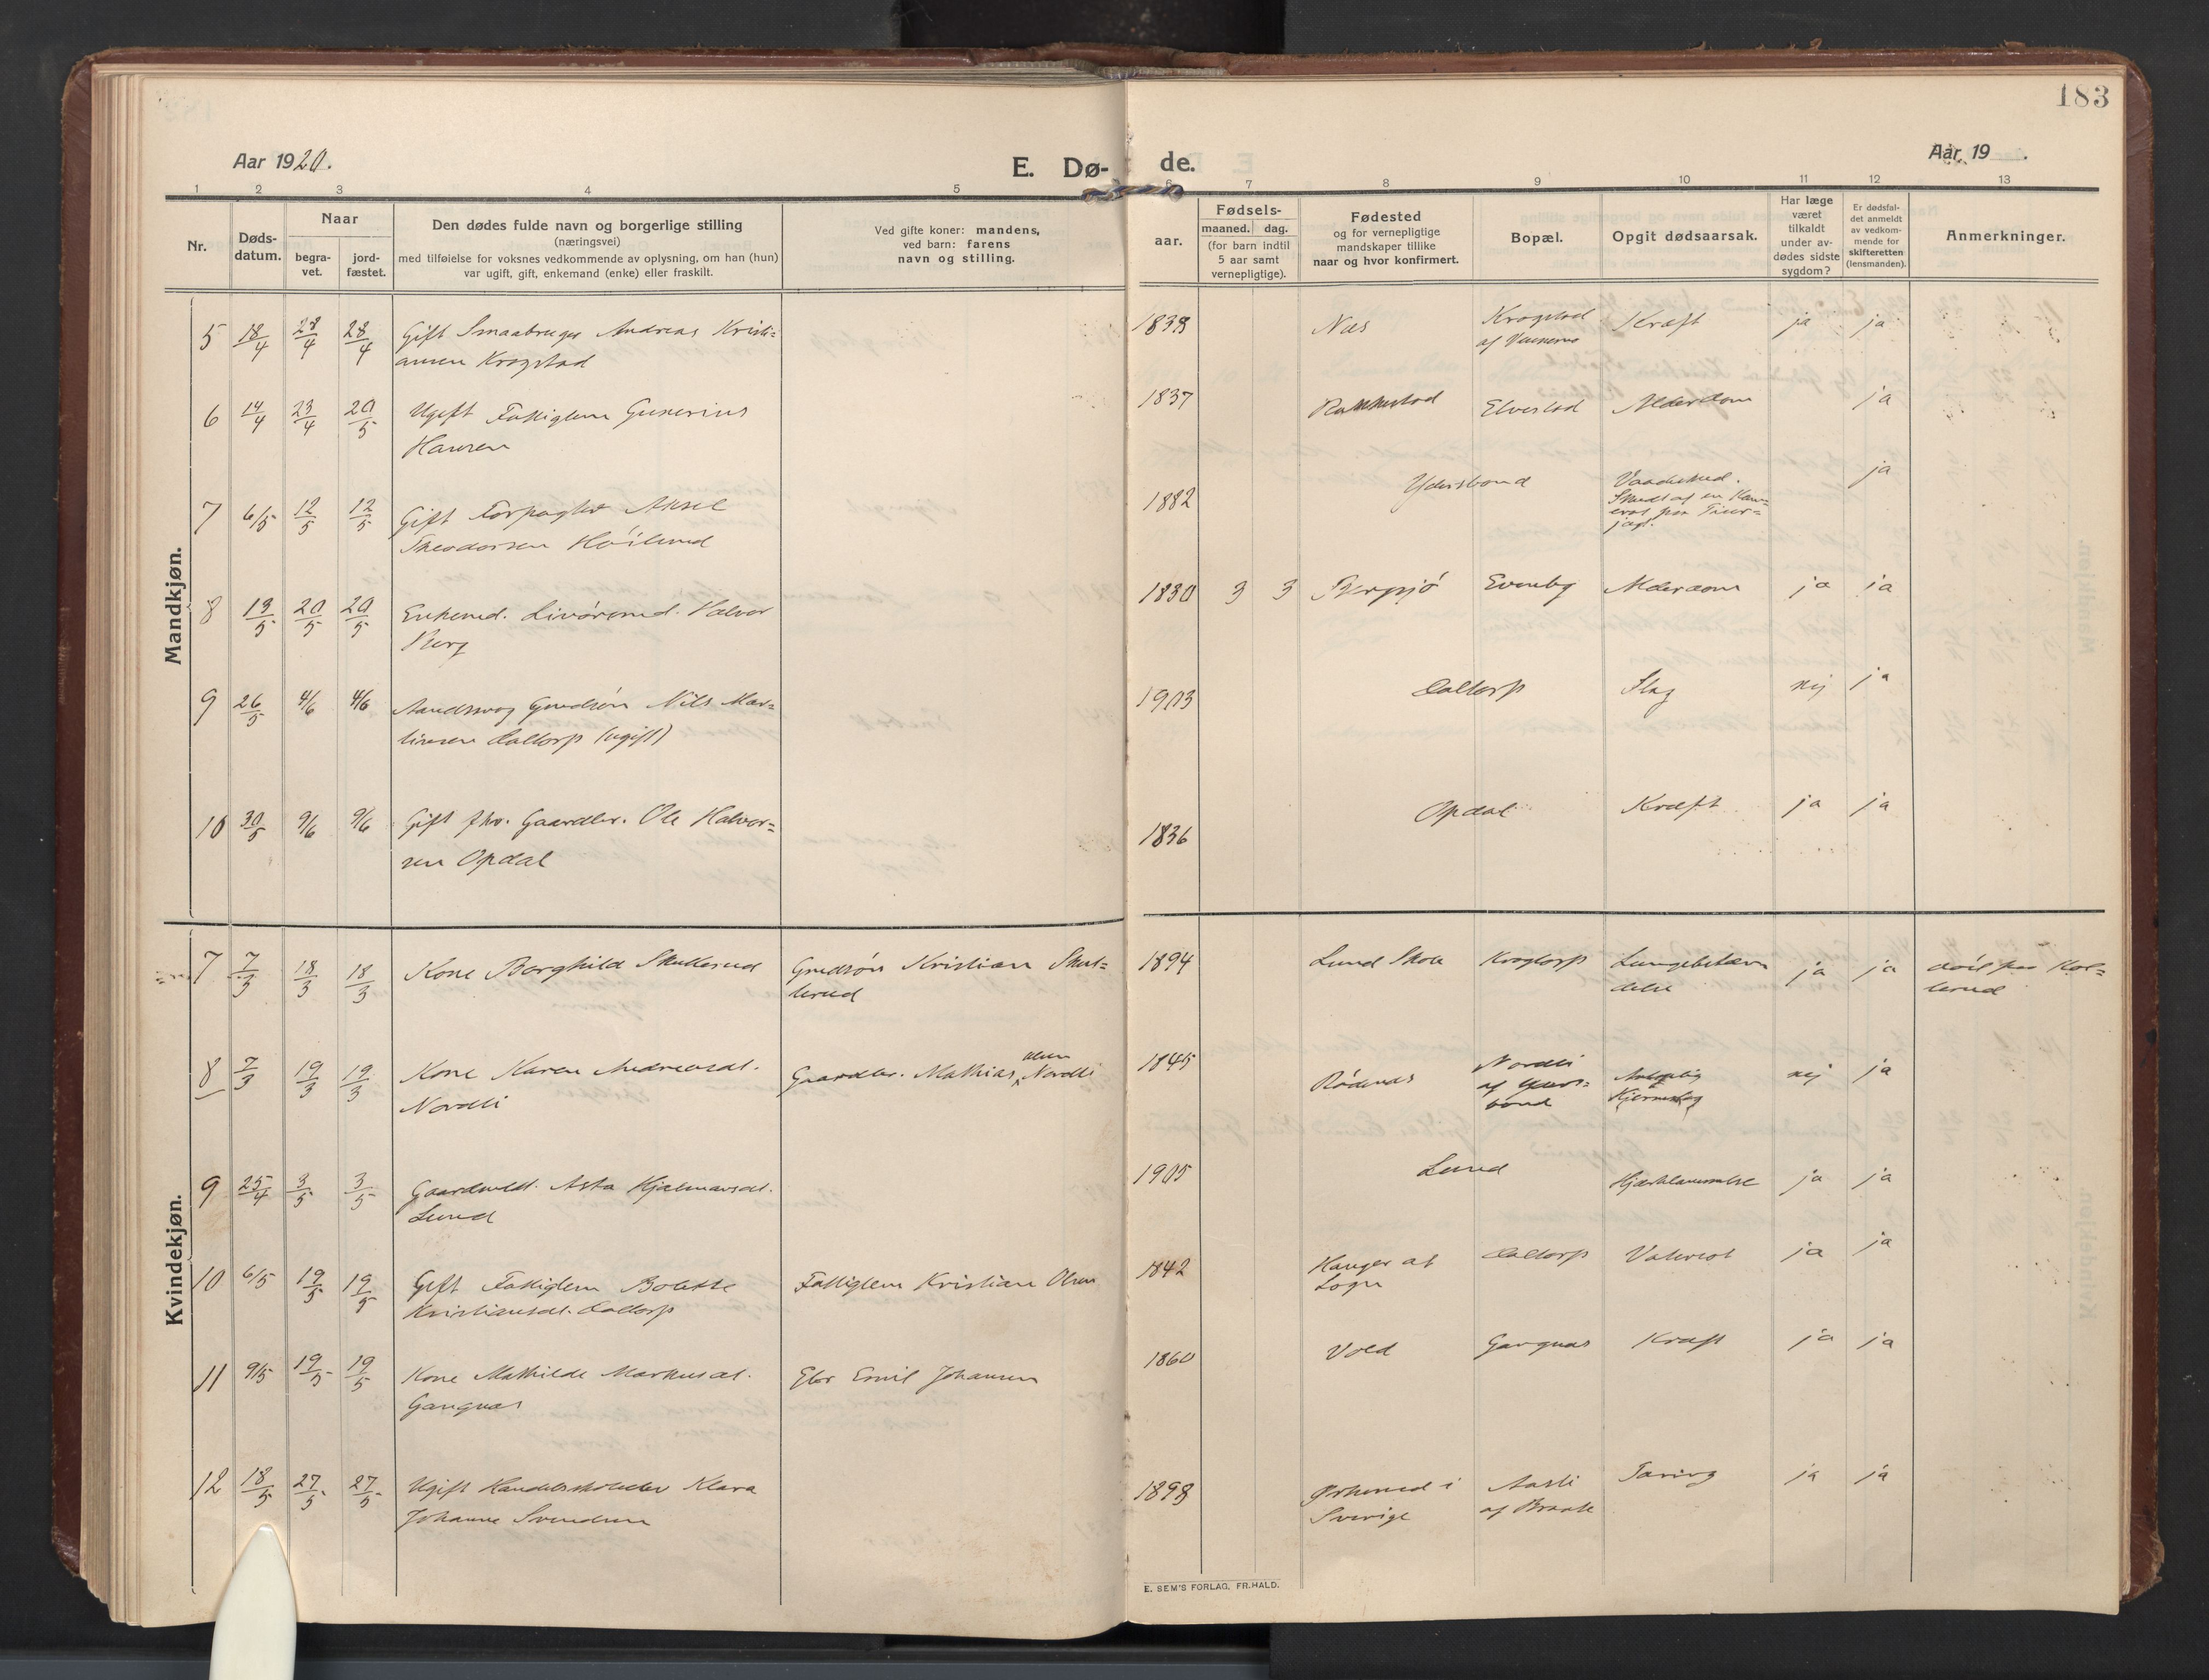 183
Aar 1920.
E. Dø-
de.
Aar 19 .
1 2 3 4 5 6 7 8 9 10 11 12 13
Nr.
Døds-
datum.
Naar
begra-
vet.
jord-
fæstet.
Den dødes fulde navn og borgerlige stilling
(næringsvei)
med tilføielse for voksnes vedkommende av oplysning, om han (hun)
var ugift, gift, enkemand (enke) eller fraskilt.
Ved gifte koner: mandens,
ved barn: farens
navn og stilling.
aar.
Fødsels-
maaned. dag.
(for barn indtil
5 aar samt
vernepligtige).
Fødested
og for vernepligtige
mandskaper tillike
naar og hvor konfirmert.
Bopæl.
Opgit dødsaarsak.
Har læge
været
tilkaldt
under av-
dødes sidste
sygdom?
Er dødsfal-
det anmeldt
av vedkom-
mende for
skifteretten
(lensmanden).
Anmerkninger.
Mandkjøn.
5 18/4 28/4 28/4 Gift Smaabruger Andreas Kristi=
ansen Krogstad
1839 Næs Krogstad
af
Kræft ja ja
6 14/4 23/4 20/5 Ugift Fattiglem Gunerius
Hansen
1837 Rakkestad Elvestad Alderdom ja
7 6/5 12/5 12/5 Gift Forpagter Aksel
Theodorsen Höilund
1882 Ydersbond Vaadeskud.
Skudt af en Kam=
erat paa Tiur=
jagt.
ja
8 13/5 20/5 20/5 Enkemd. Livöremd. Halvor
Berg
1830 3 3 Bergsjö Evenby Alderdom ja ja
9 26/5 4/6 4/6 Aandssvag Grndsön Nils Mar=
tinsen Daltorp (ugift)
1903 Daltorp Slag nej ja
10 30/5 9/6 9/6 Gift fhv. Gaardbr. Ole Halvor=
sen Opdal
1836 Opdal Kræft ja ja
Kvindekjøn.
7 7/3 18/3 18/3 Kone Borghild Skullerud
Grndsön Kristian Skul=
lerud
1894 Lund Skole Krogtorp Lungebetæn
delse
ja ja död paa Kol=
lerud
8 7/3 19/3 19/3 Kone Karen Andreasdt.
Nordli
Gaardbr. Mathias Olsen Nordli
1845 Rödenæs Nordli
af Yders=
bond
Kjerneslag
nej ja
9 25/4 3/5 3/5 Gaardmdt. Asta Hjalmarsdt.
Lund
1905 Lund Hjertelammelse ja ja
10 6/5 19/5 19/5 Gift Fattiglem Bolette
Kristiansdt. Daltorp
Fattiglem Kristian Olsen
1842 Kanger at
Sogn
Daltorp Vatersot ja ja
11 9/5 19/5 19/5 Kone Mathilde Markusdt.
Gangnæs
Gbr Emil Johansen
1860 Vold Gangnæs Kræft ja ja
12 18/5 27/5 27/5 Ugift Handelsholder Klara
Johanne Svendsen
1898 Örkenud i
Sverige
Aasli
af Braate
Tæring ja ja
E. SEM'S FORLAG, FR.HALD.